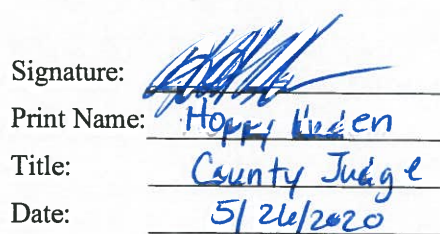 Signature:
Print Name: Hoppy Haden
Title: County Judge
Date: 5/26/2020